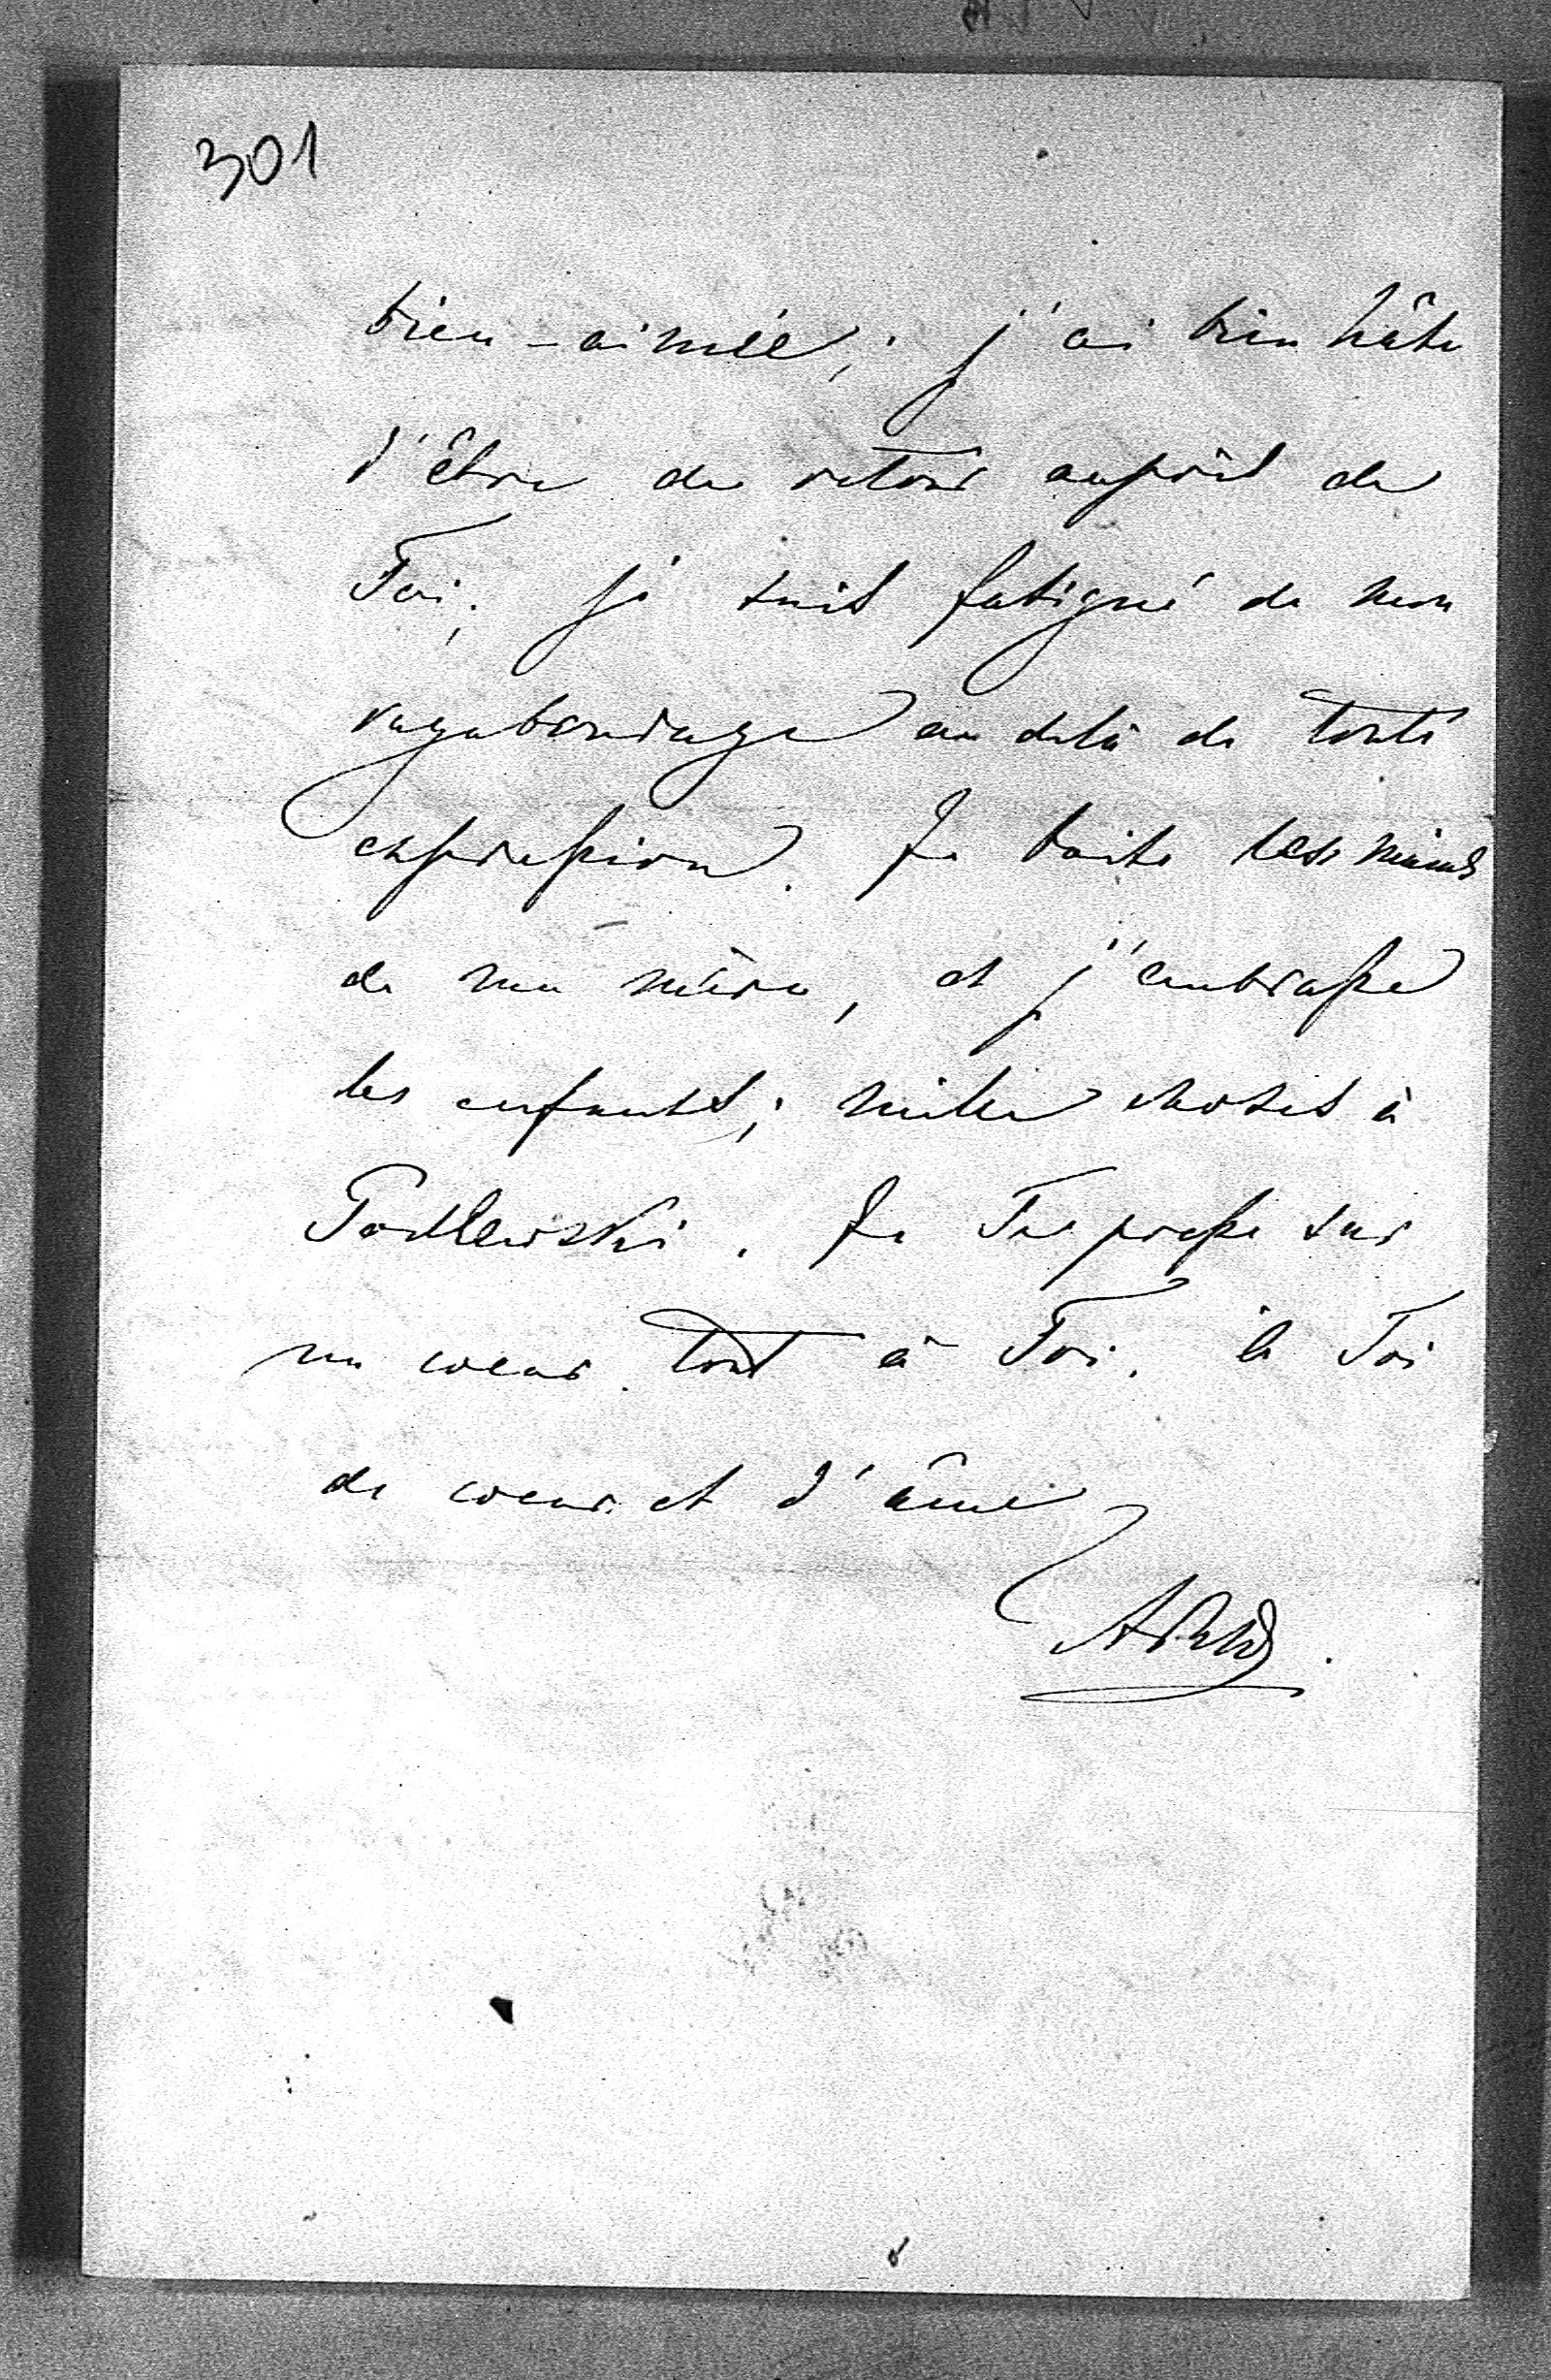 301
bien-aimée; j'ai bien hâte
d'être de retour auprès de
Toi; je suis fatigué de mon
vagabondage au delà de toute
expression. Je baise les mains
de ma mère, et j'embrasse
les enfants; mille choses à
Podlewski. Je Te presse sur
mon coeur tout à Toi, à Toi
de coeur et d'âme